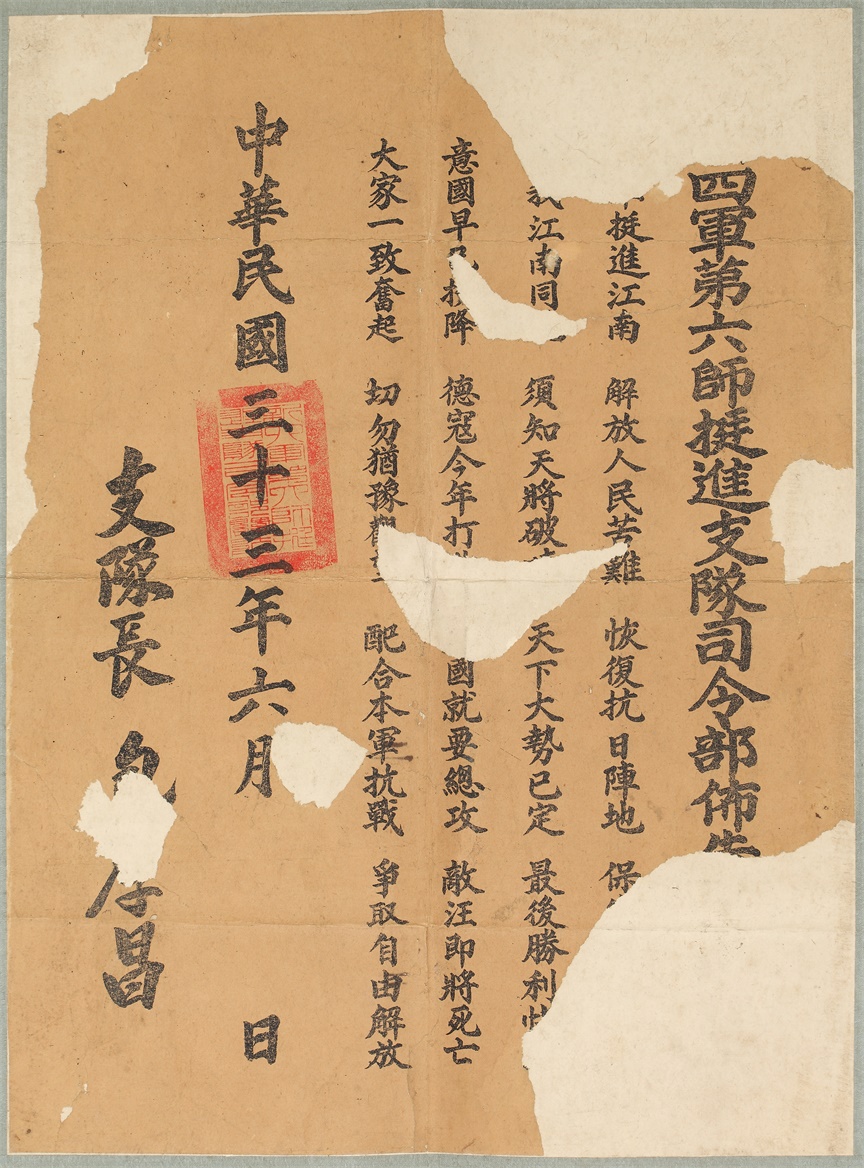 四軍第六師挺進支隊司令部佈告
挺進江南 解放人民苦難 恢復抗日陣地 保
我江南同 須知天將破 天下大勢已定 最後勝利快
意國早已投降 德寇今年打 國就要總攻 敵汪即將死亡
大家一致奮起 切勿猶豫觀望 配合本軍抗戰 爭取自由解放
中華民國三十三年六月 日
支隊長 昌